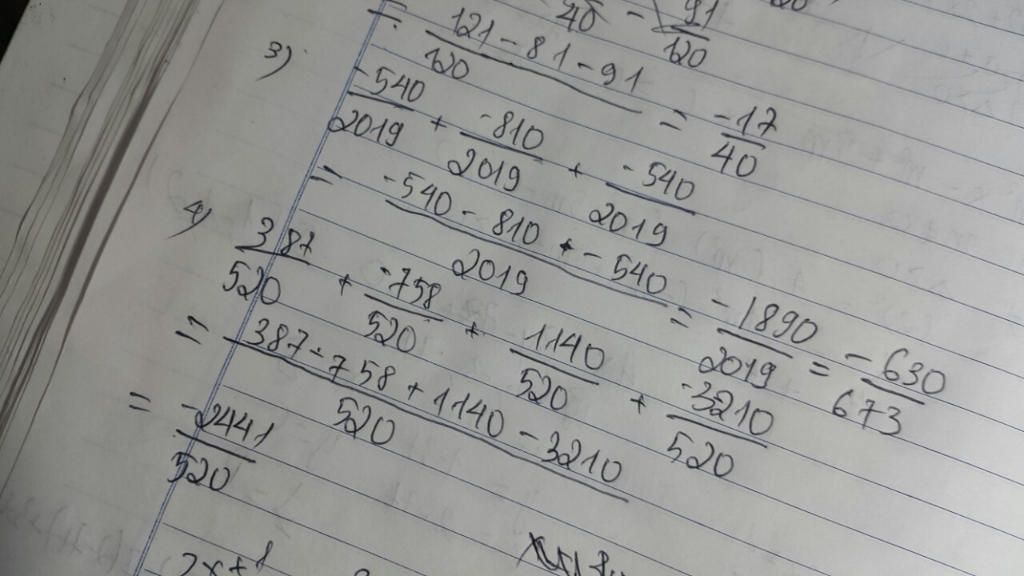 40 - 91/120
= (121 - 81 - 91)/120 = -17/40
3) -540/2019 + -810/2019 + -540/2019
= (-540 - 810 + -540)/2019 = -1890/2019 = -630/673
4) 387/520 + -758/520 + 1140/520 + -3210/520
= (387 - 758 + 1140 - 3210)/520
= -2441/520